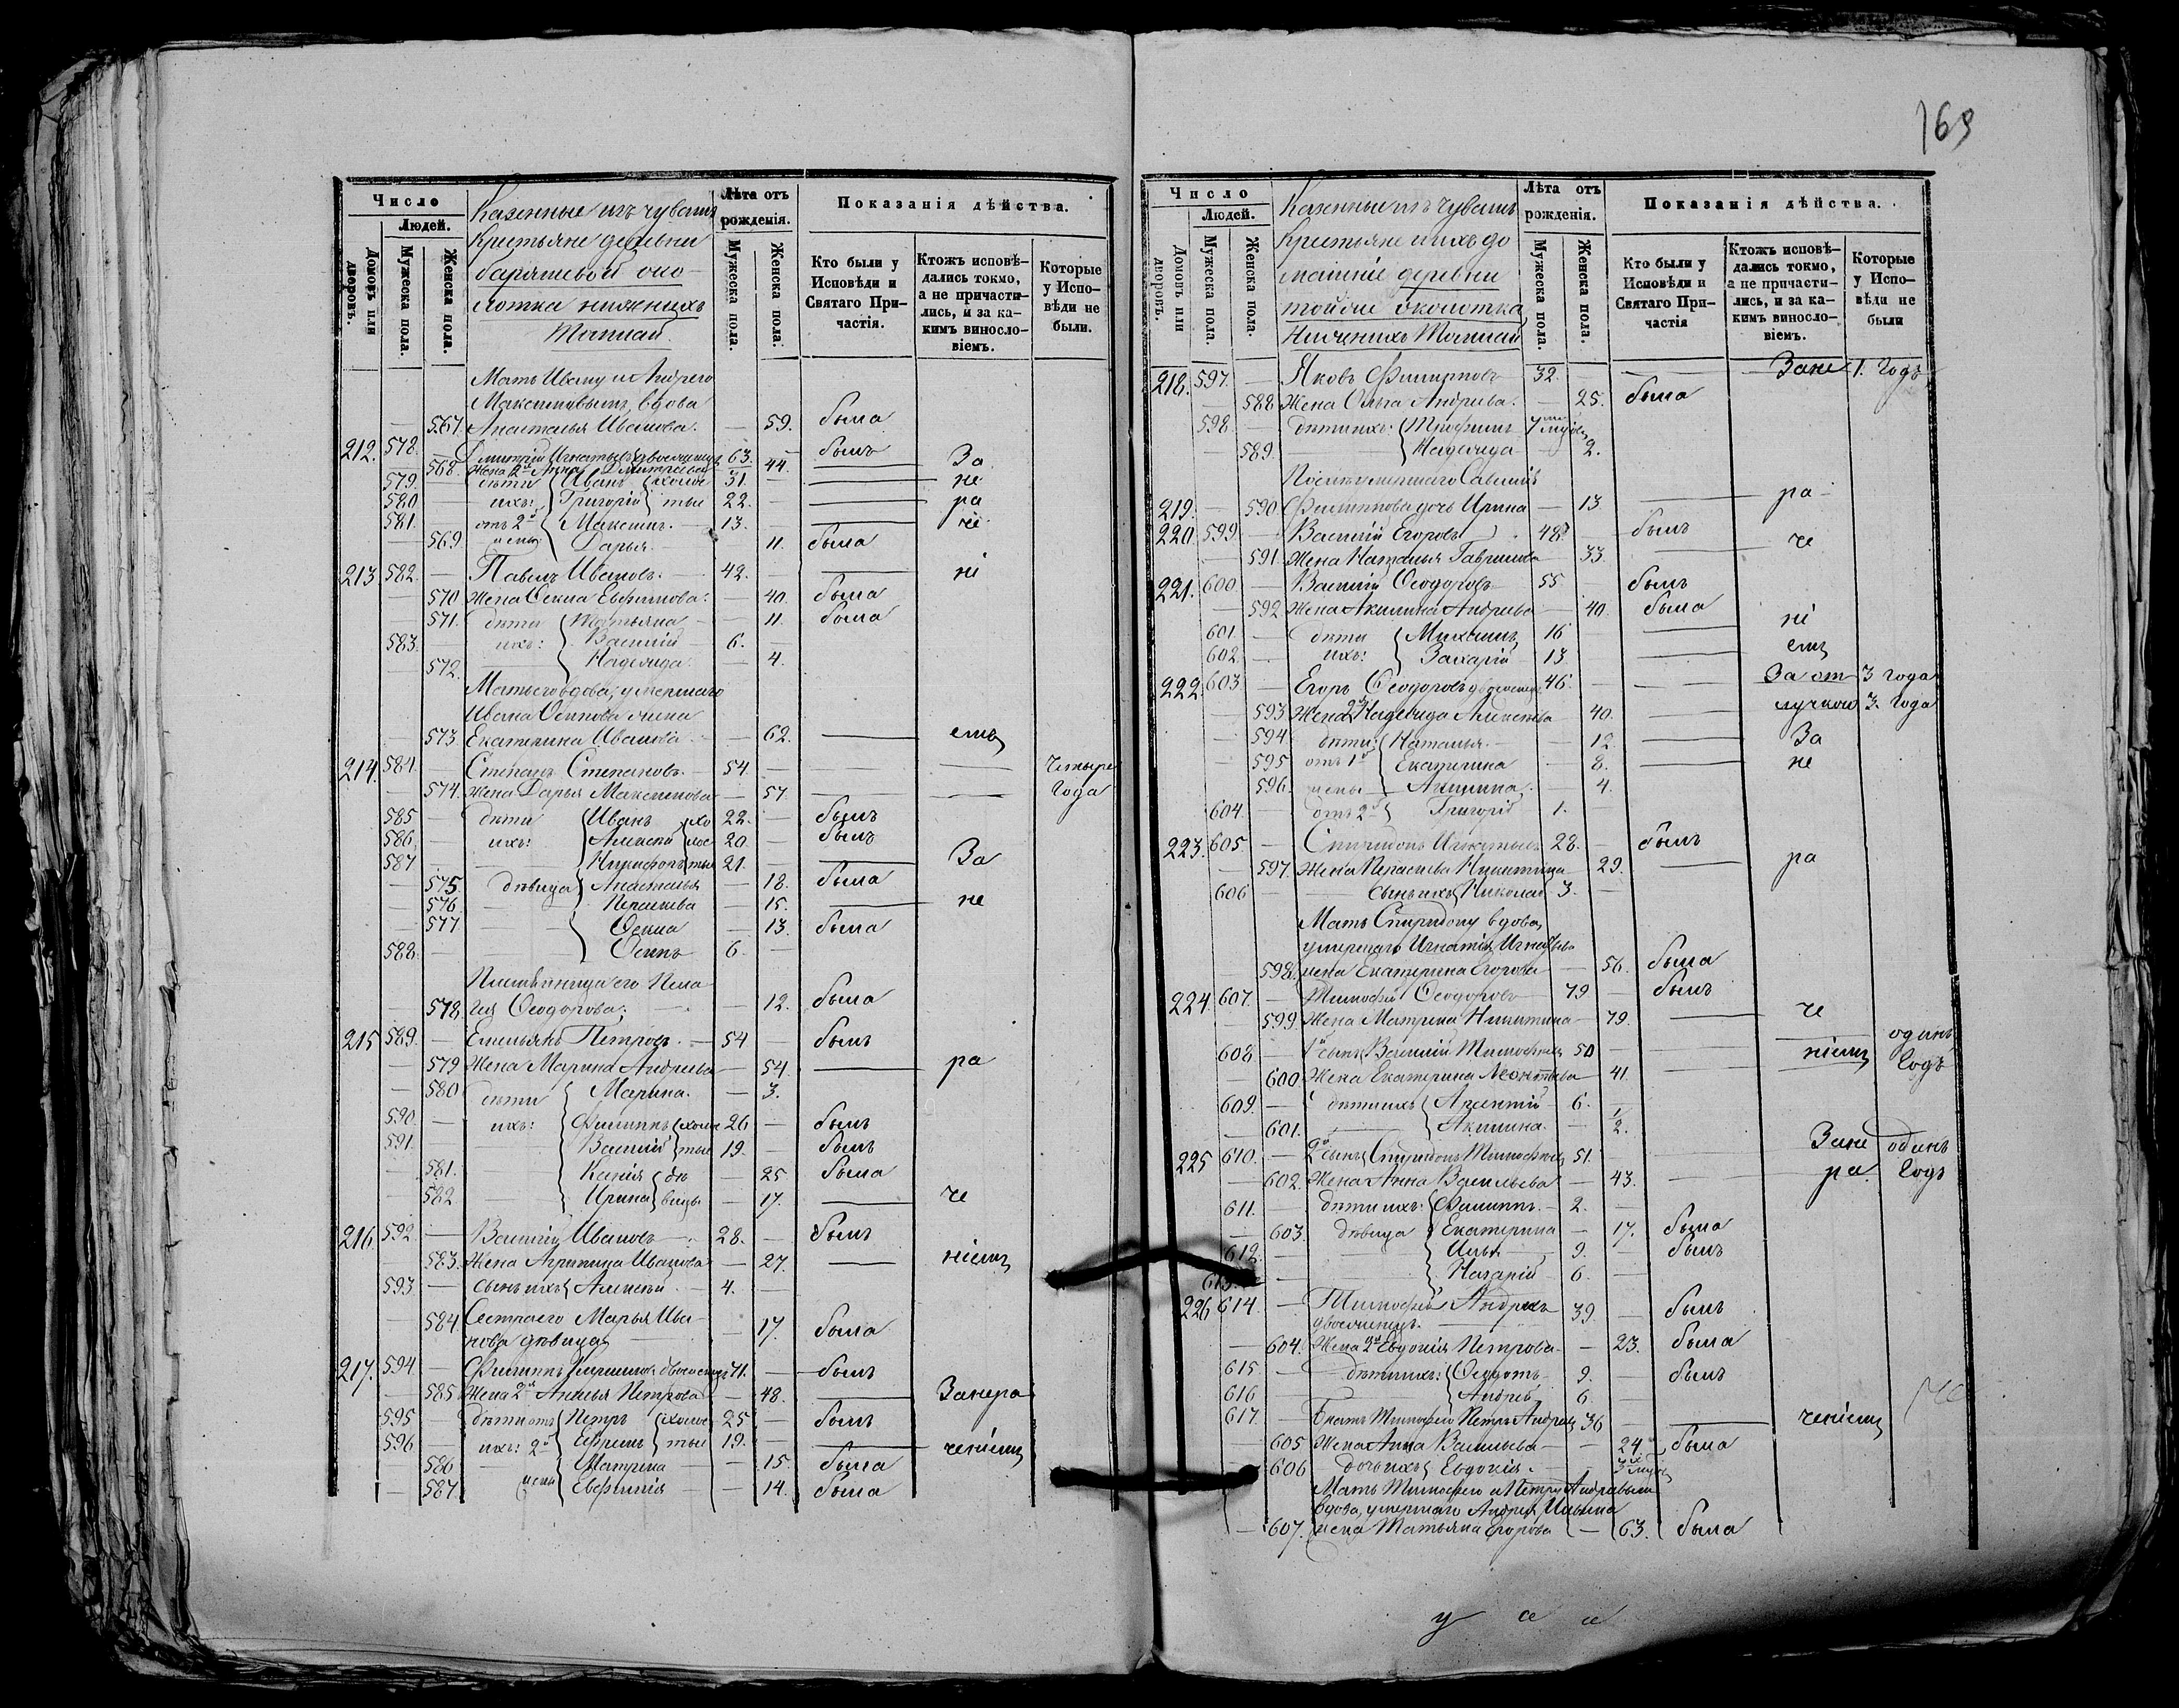 169
Число
Людей.
Домовъ или дворовъ.
Мужеска пола.
Женска пола.
Казенные изъ чувашъ
Крестьяне деревни
околотка нижнихъ
Лѣта отъ рожденія.
Мужеска пола.
Женска пола.
Показанія дѣйства.
Кто были у Исповѣди и Святаго Причастія.
Ктожъ исповѣдались токмо, а не причастились, и за какимъ винословіемъ.
Которые у Исповѣди не были.
Мать Ивану и Андрею
Максимовымъ, вдова
567. Анастасья Иванова. — 59. была
212. 578. — Дмитрій Игнатьевъ двоеженецъ 63. — былъ
568. Жена 2я Анна Дмитріева — 44. — За
579. — дѣти Иванъ холос 31. — не
580 — ихъ: Григорій тые 22. — ра
581. — отъ 2й Максимъ. — 13. — че
569. жены Дарья — 11. была
213 582. — Павелъ Ивановъ. — 42. — ні
570 Жена Ѳекла Евфимова: — 40. была
571. дѣти Татьяна — 11. была
583. — ихъ: Василій 6. —
572. Надежда — 4.
Мать его вдова, умершаго
Ивана Осипова жена
573. Екатерина Иванова — 62. — емъ
214. 584. — Степанъ Степановъ. — 54. — четыре
574. Жена Дарья Максимова — 57. — Года
585 — дѣти Иванъ хо 22. — былъ
586. — ихъ: Алексѣй лос 20 — былъ
587 — Никифоръ тые 21. — За
575. дѣвица Анастасья — 18. была
576. Параскева — 15. — не
577 Ѳекла — 13. была
588. — Осипъ 6. —
Племянница его Пела
578. гія Ѳеодорова. — 12. была
215 589. — Емельянъ Петровъ. — 54 — былъ
579 Жена Марина Андреева — 54. — ра
580 дѣти Марина. — 3.
590. — ихъ: Филиппъ холос 26 — былъ
591. — Василій тые 19. — былъ
581. Ксенія дѣ — 25 была
582 Ирина вицы — 17. — че
216 592. — Василій Ивановъ — 28. — былъ
583. Жена Агрипина Иванова — 27. — ніемъ
593 — сынъ ихъ Алексѣй. — 4. —
584. Сестра его Марья Ива-
нова дѣвица — 17. была
217. 594. — Филиппъ двоеженецъ 71. — былъ
585. Жена 2я Анисья Петрова — 48. — Занера
595 — дѣти отъ Петръ холос 25 — былъ
596 — ихъ: 2й Ефремъ тые 19. —
586 Матрена — 15. была ченіемъ
587. жены Евфимія — 14. была
Число
Людей.
Домовъ или дворовъ.
Мужеска пола.
Женска пола.
Казенные изъ чувашъ
Крестьяне и ихъ до
машніе деревни
тойже околотка
Лѣта отъ рожденія.
Мужеска пола.
Женска пола.
Показанія дѣйства.
Кто были у Исповѣди и Святаго Причастія
Ктожъ исповѣдались токмо, а не причастились, и за какимъ винословіемъ.
Которые у Исповѣди не были
218. 597. — Яковъ Филипповъ 32. — Зане 1. Годъ
588 Жена Ольга Андреева. — 25. была
598 — дѣти ихъ: Трофимъ
589. Надежда — 2.
Послѣ умершаго Савелія
219. — 590 Филипова дочь Ирина — 13. — ра
220. 599 — Василій Егоровъ 48 — былъ
591. Жена Наталья Гаврилова — 33. — че
221. 600 — Василій Ѳеодоровъ 55 — былъ
592 Жена Акилина Андреева — 40. была
601. — дѣти Михаилъ 16 — ні
602. — ихъ: Захарій 13. — емъ
222. 603 — Егоръ Ѳеодоровъ двоеженецъ 46. — За от 3 года
593 Жена 2я Надежда Алексѣева 40. — лучкою 3. Года
594. дѣти: Наталья. — 12. — За
595 отъ 1й Екатерина — 8. — не
596. жены Акилина. — 4.
604. — отъ 2й Григорій 1.
223. 605 — Спиридонъ Игнатьевъ 28. — былъ
597. Жена Параскева Никитина — 29. — ра
606 — сынъ ихъ Николай 3. —
Мать Спиридону вдова,
умершаго Игнатія Игнатьева
598. жена Екатерина Егорова — 56. была
224. 607. — Тимоѳей Ѳеодоровъ 79 — былъ
599. Жена Матрена Никитина — 79. — че
608 — 1й сынъ Василій Тимоѳеевъ 50 — ніемъ одинъ
600. Жена Екатерина Леонтьева — 41. — Годъ
609. — дѣти ихъ Арсентій 6. —
601. Акилина. — 1/2.
225 610. — 2й сынъ Спиридонъ Тимоѳеевъ 51. — Зане одинъ
602. Жена Анна Васильева — 43. — ра. Годъ
611. — дѣти ихъ: Филиппъ. — 2. —
603. дѣвица Екатерина — 17. была
612. — Илья 9. — былъ
613. — Назарій 6. —
226 614. — Тимоѳей Андреевъ 39. — былъ
двоеженецъ.
604. Жена 2я Евдокія Петрова — 23. была
615 — дѣти ихъ: Ѳедотъ 9. — былъ
616 Андрей 6 —
617. — Братъ Тимоѳею Петръ Андреевъ 36 — ченіемъ
605 Жена Анна Васильева — 24. была
606 дочь ихъ Евдокія.
Мать Тимоѳею и Петру Андреевымъ
вдова, умершаго Андрея Ильина
607. жена Татьяна Егорова — 63. была